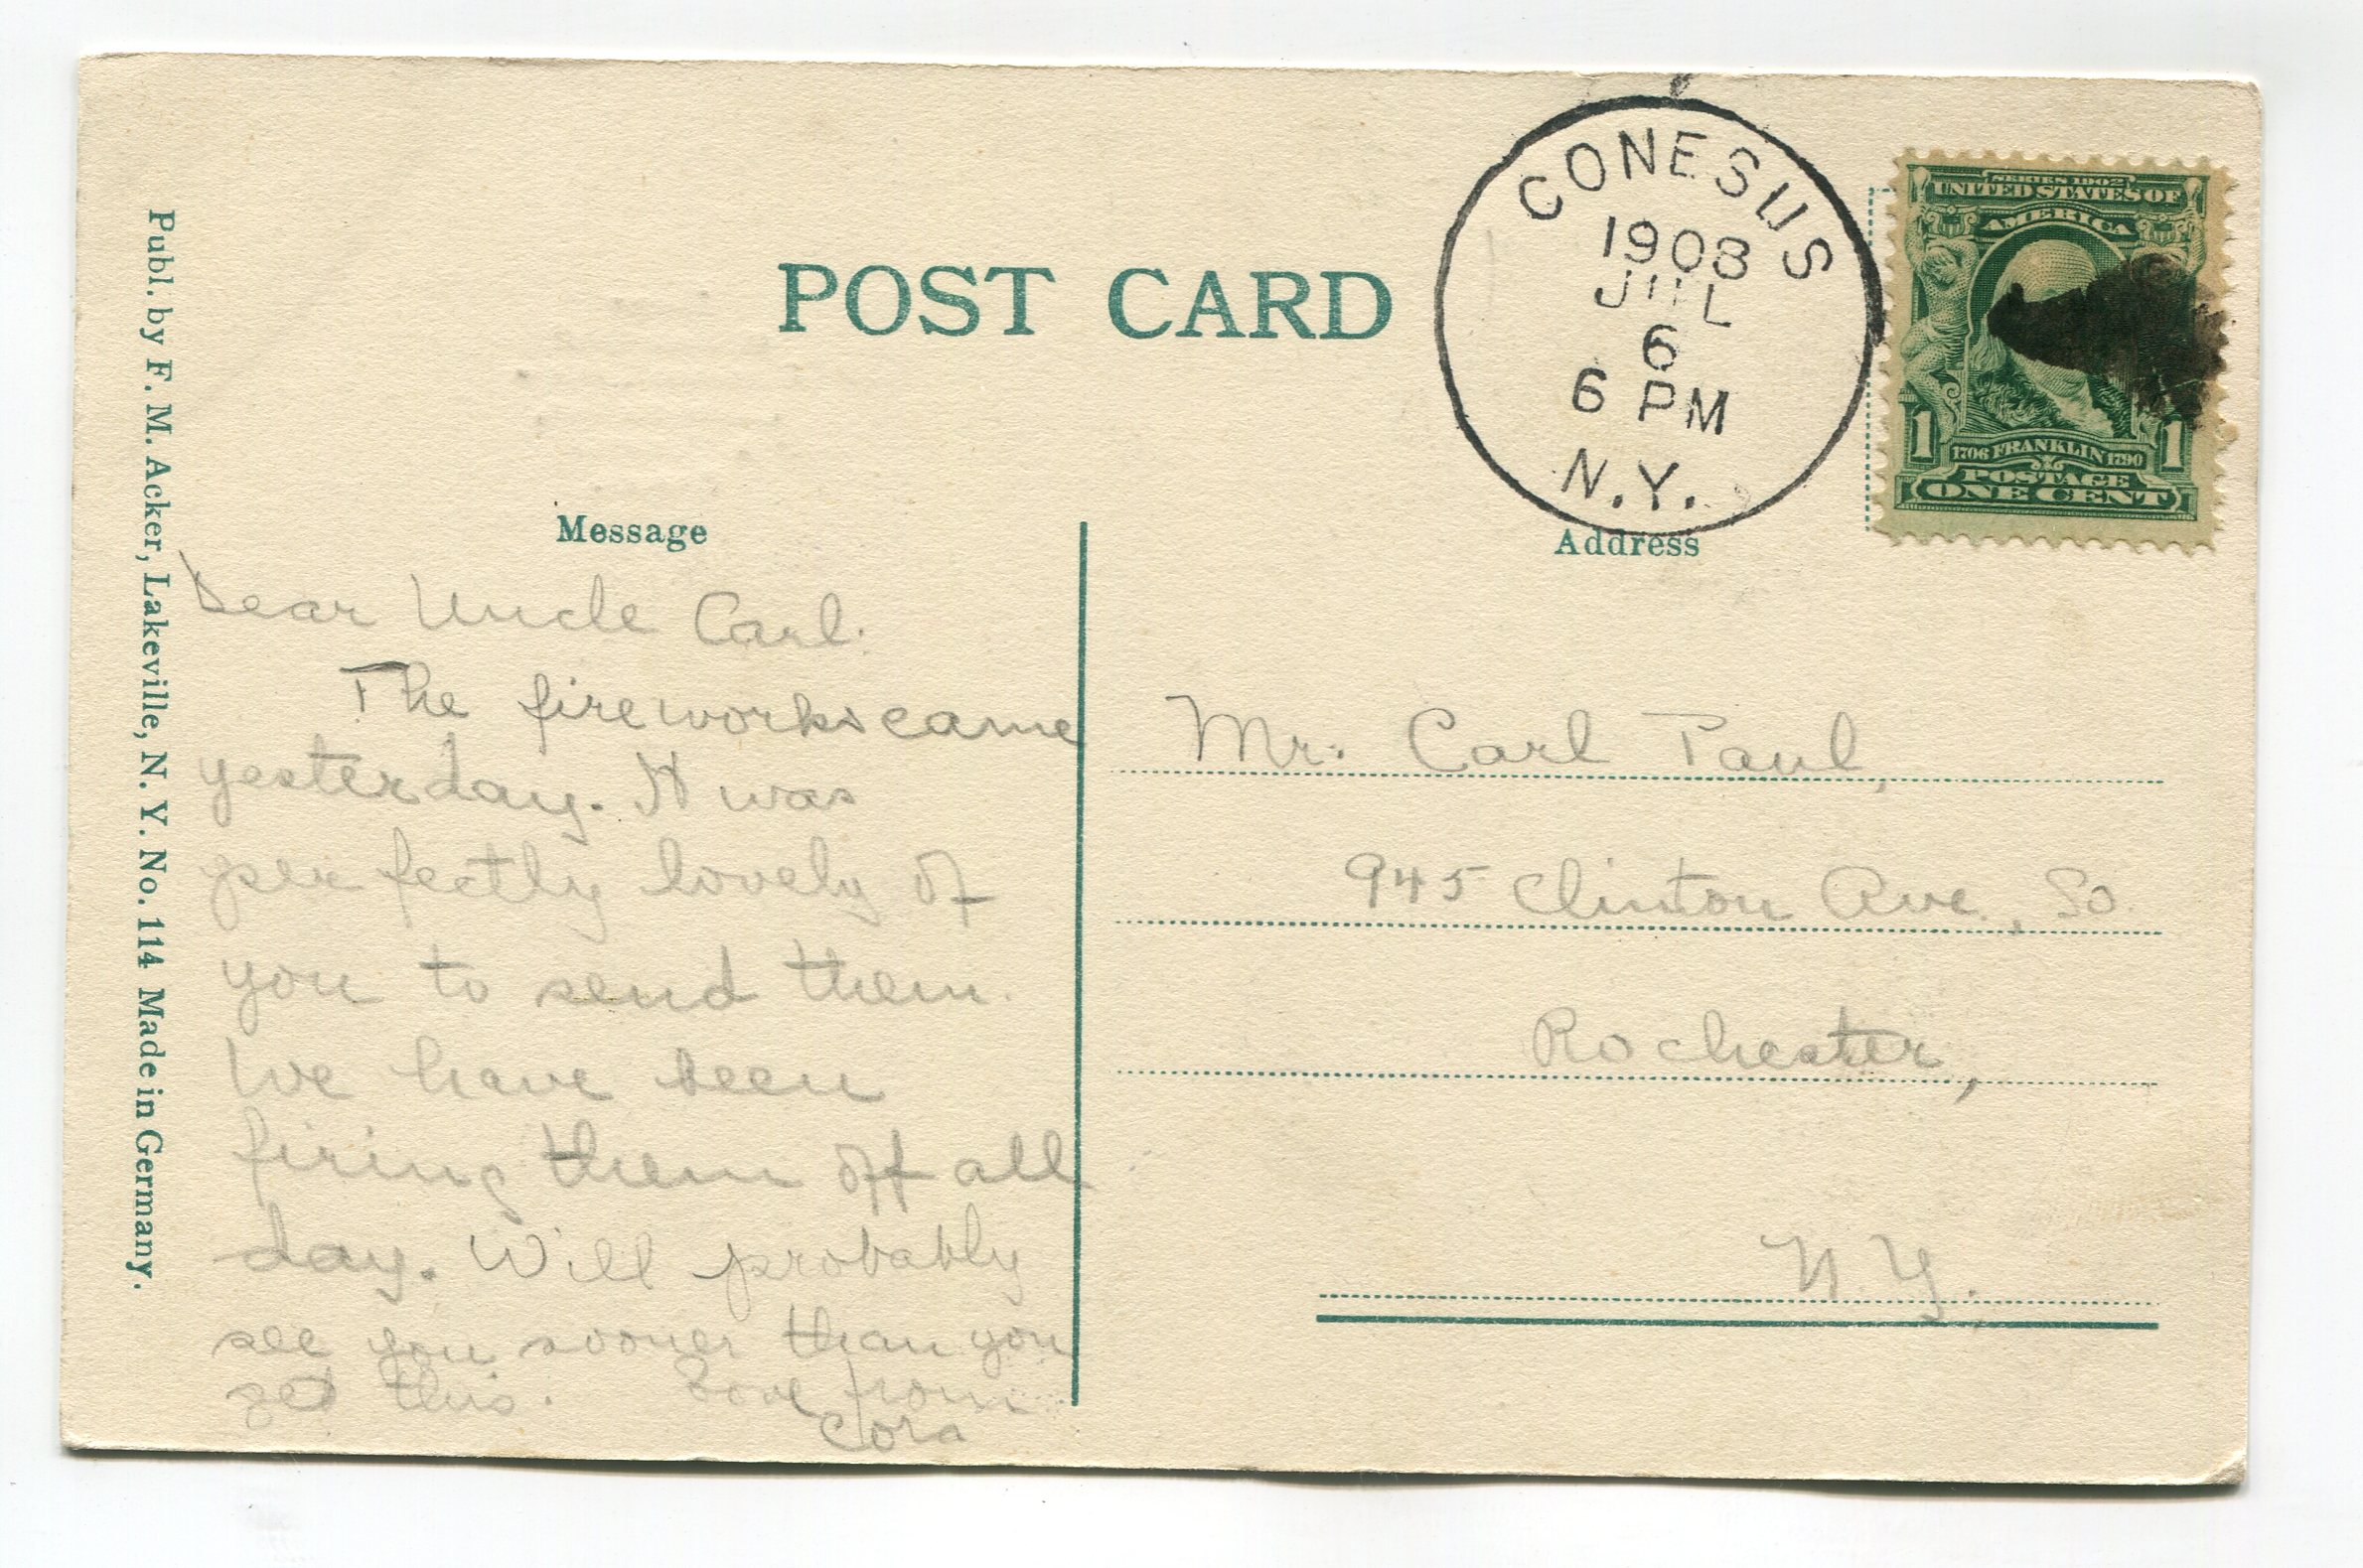 Publ. by F. M. Acker, Lakeville, N. Y. No. 114 Made in Germany.
POST CARD
CONESUS
1908
JUL
6
6 PM
N.Y.
SERIES 1902
UNITED STATES OF
AMERICA
1 1
1706 FRANKLIN 1790
POSTAGE
ONE CENT
Message
Dear Uncle Carl:
The fireworks came
yesterday. It was
perfectly lovely of
you to send them.
We have been
firing them off all
day. Will probably
see you sooner than you
get this. Love from
Cora
Address
Mr. Carl Paul,
945 Clinton Ave., So.
Rochester,
N.Y.